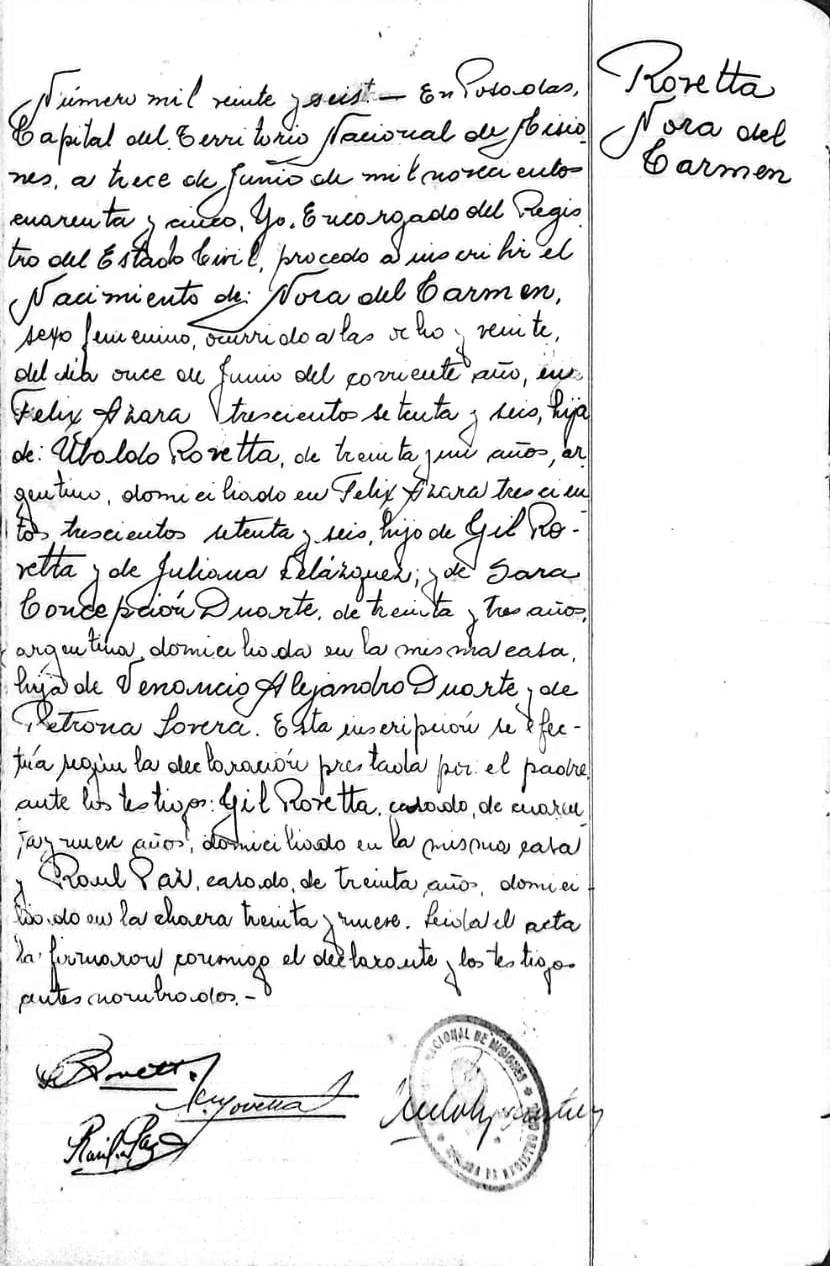 Número mil veinte y seis. — En Posadas,
Capital del Territorio Nacional de Misio-
nes, a trece de Junio de mil novecientos
cuarenta y cinco, Yo, Encargado del Regis-
tro del Estado Civil, procedo a inscribir el
Nacimiento de: Nora del Carmen,
sexo femenino, ocurrido a las ocho y veinte,
del día once de Junio del corriente año, en
Felix Azara trescientos setenta y seis, hija
de: Ubaldo Rovetta, de treinta y un años, ar-
gentino, domiciliado en Felix Azara trescien
tos, trescientos setenta y seis, hijo de Gil Ro-
vetta y de Juliana Velázquez; y de Sara
Concepción Duarte, de treinta y tres años,
argentina, domiciliada en la misma casa,
hija de Venancio Alejandro Duarte y de
Petrona Lovera. Esta inscripción se efec-
túa según la declaración prestada por el padre
ante los testigos: Gil Rovetta, casado, de cuaren-
ta y nueve años, domiciliado en la misma casa
y Raul Paz, casado, de treinta años, domici-
liado en la chacra treinta y nueve. Leída el acta
la firmaron conmigo el declarante y los testigos
antes nombrados. -
Rovetta
Nora del
Carmen
Rovetta
Rovetta
Raul Paz
NACIONAL DE MISIONES